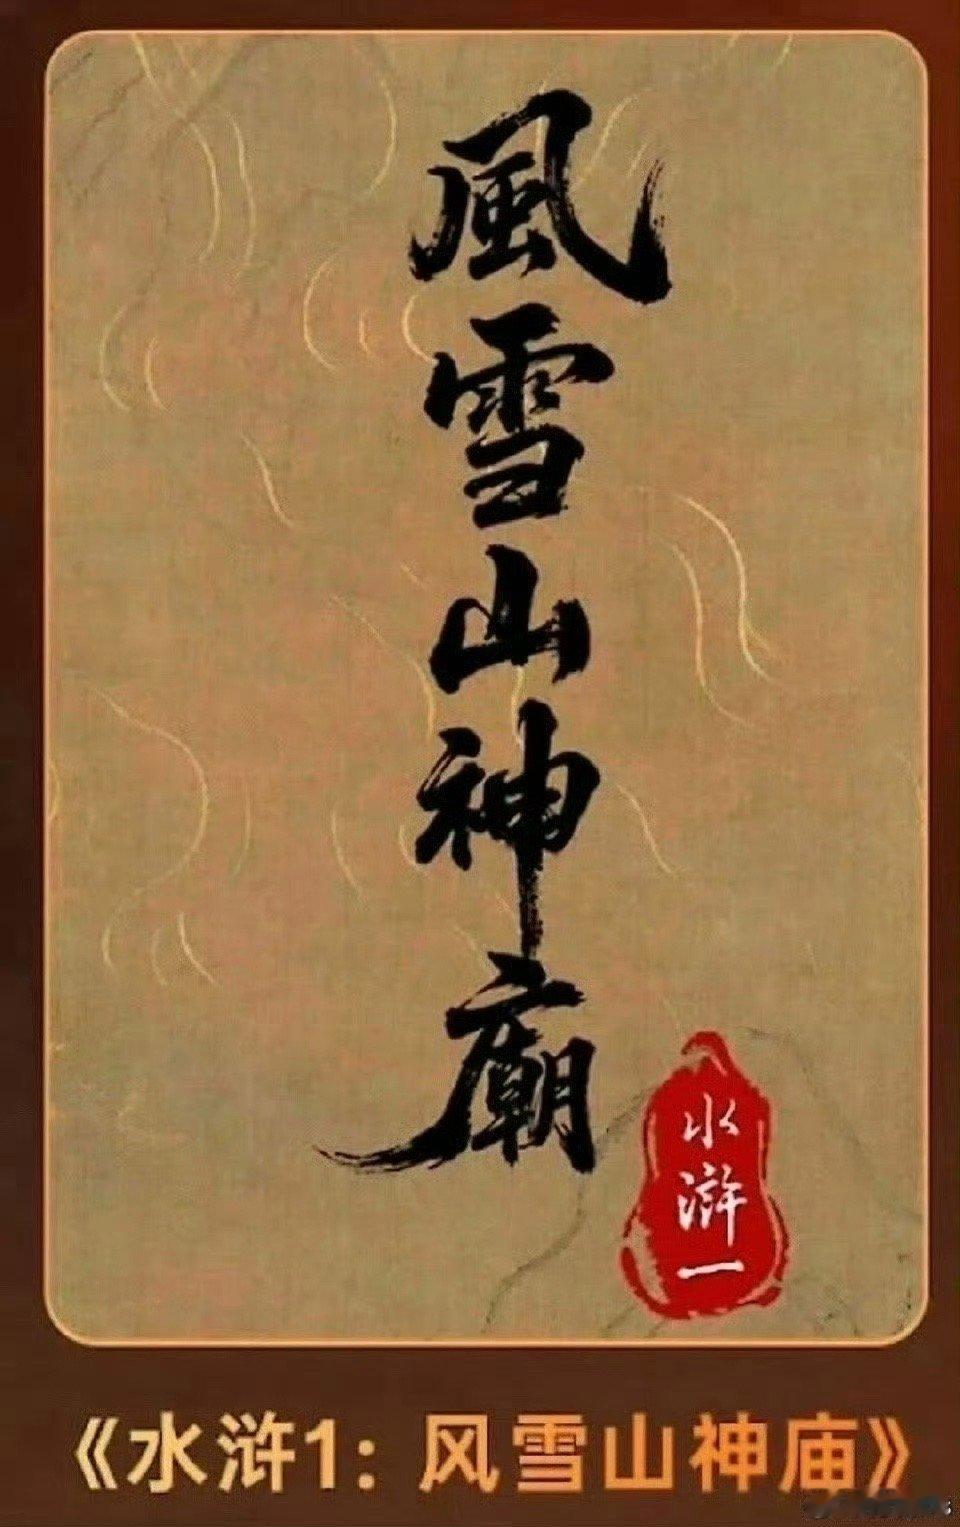 風雪山神廟
水浒一
《水浒1：风雪山神庙》